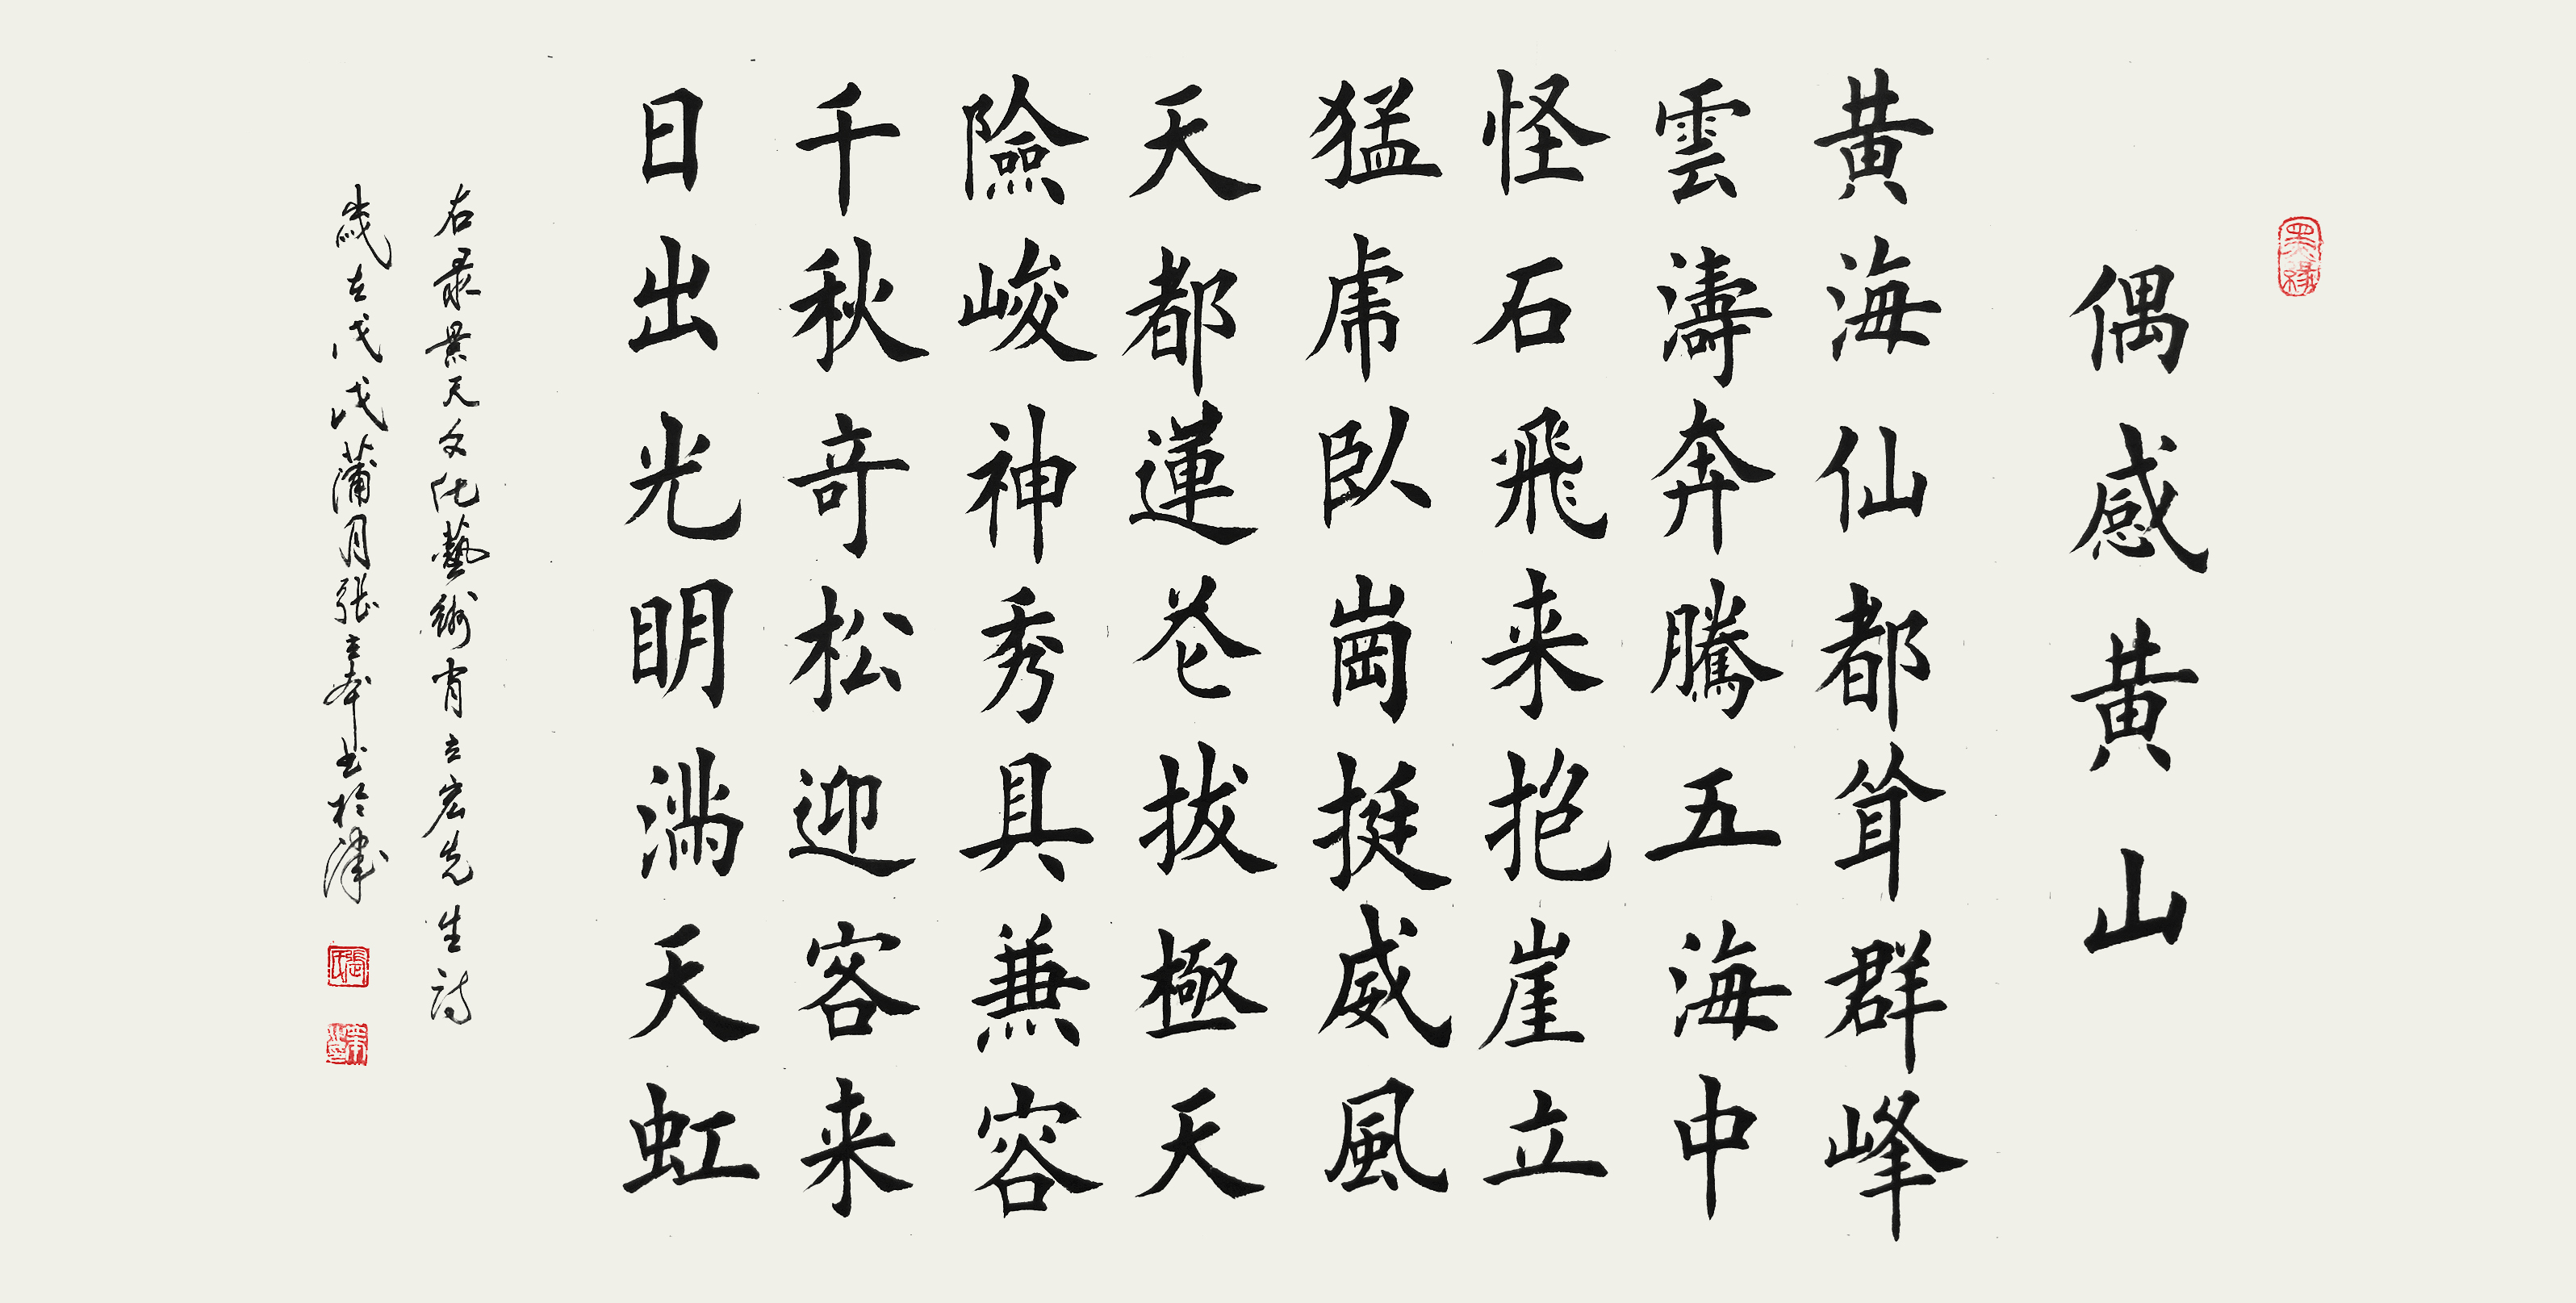 墨缘
偶感黄山
黄海仙都耸群峰
雲濤奔騰五海中
怪石飛来抱崖立
猛虎臥崗挺威風
天都蓮花拔極天
險峻神秀具兼容
千秋奇松迎客来
日出光明满天虹
右录景天文化藝術肖立宏先生詩
歲在戊戌蒲月張立奉书於津